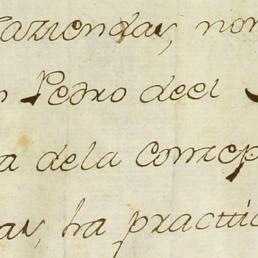 haziendas, nom
n Pedro deel S
a dela Concep
as, ha practic